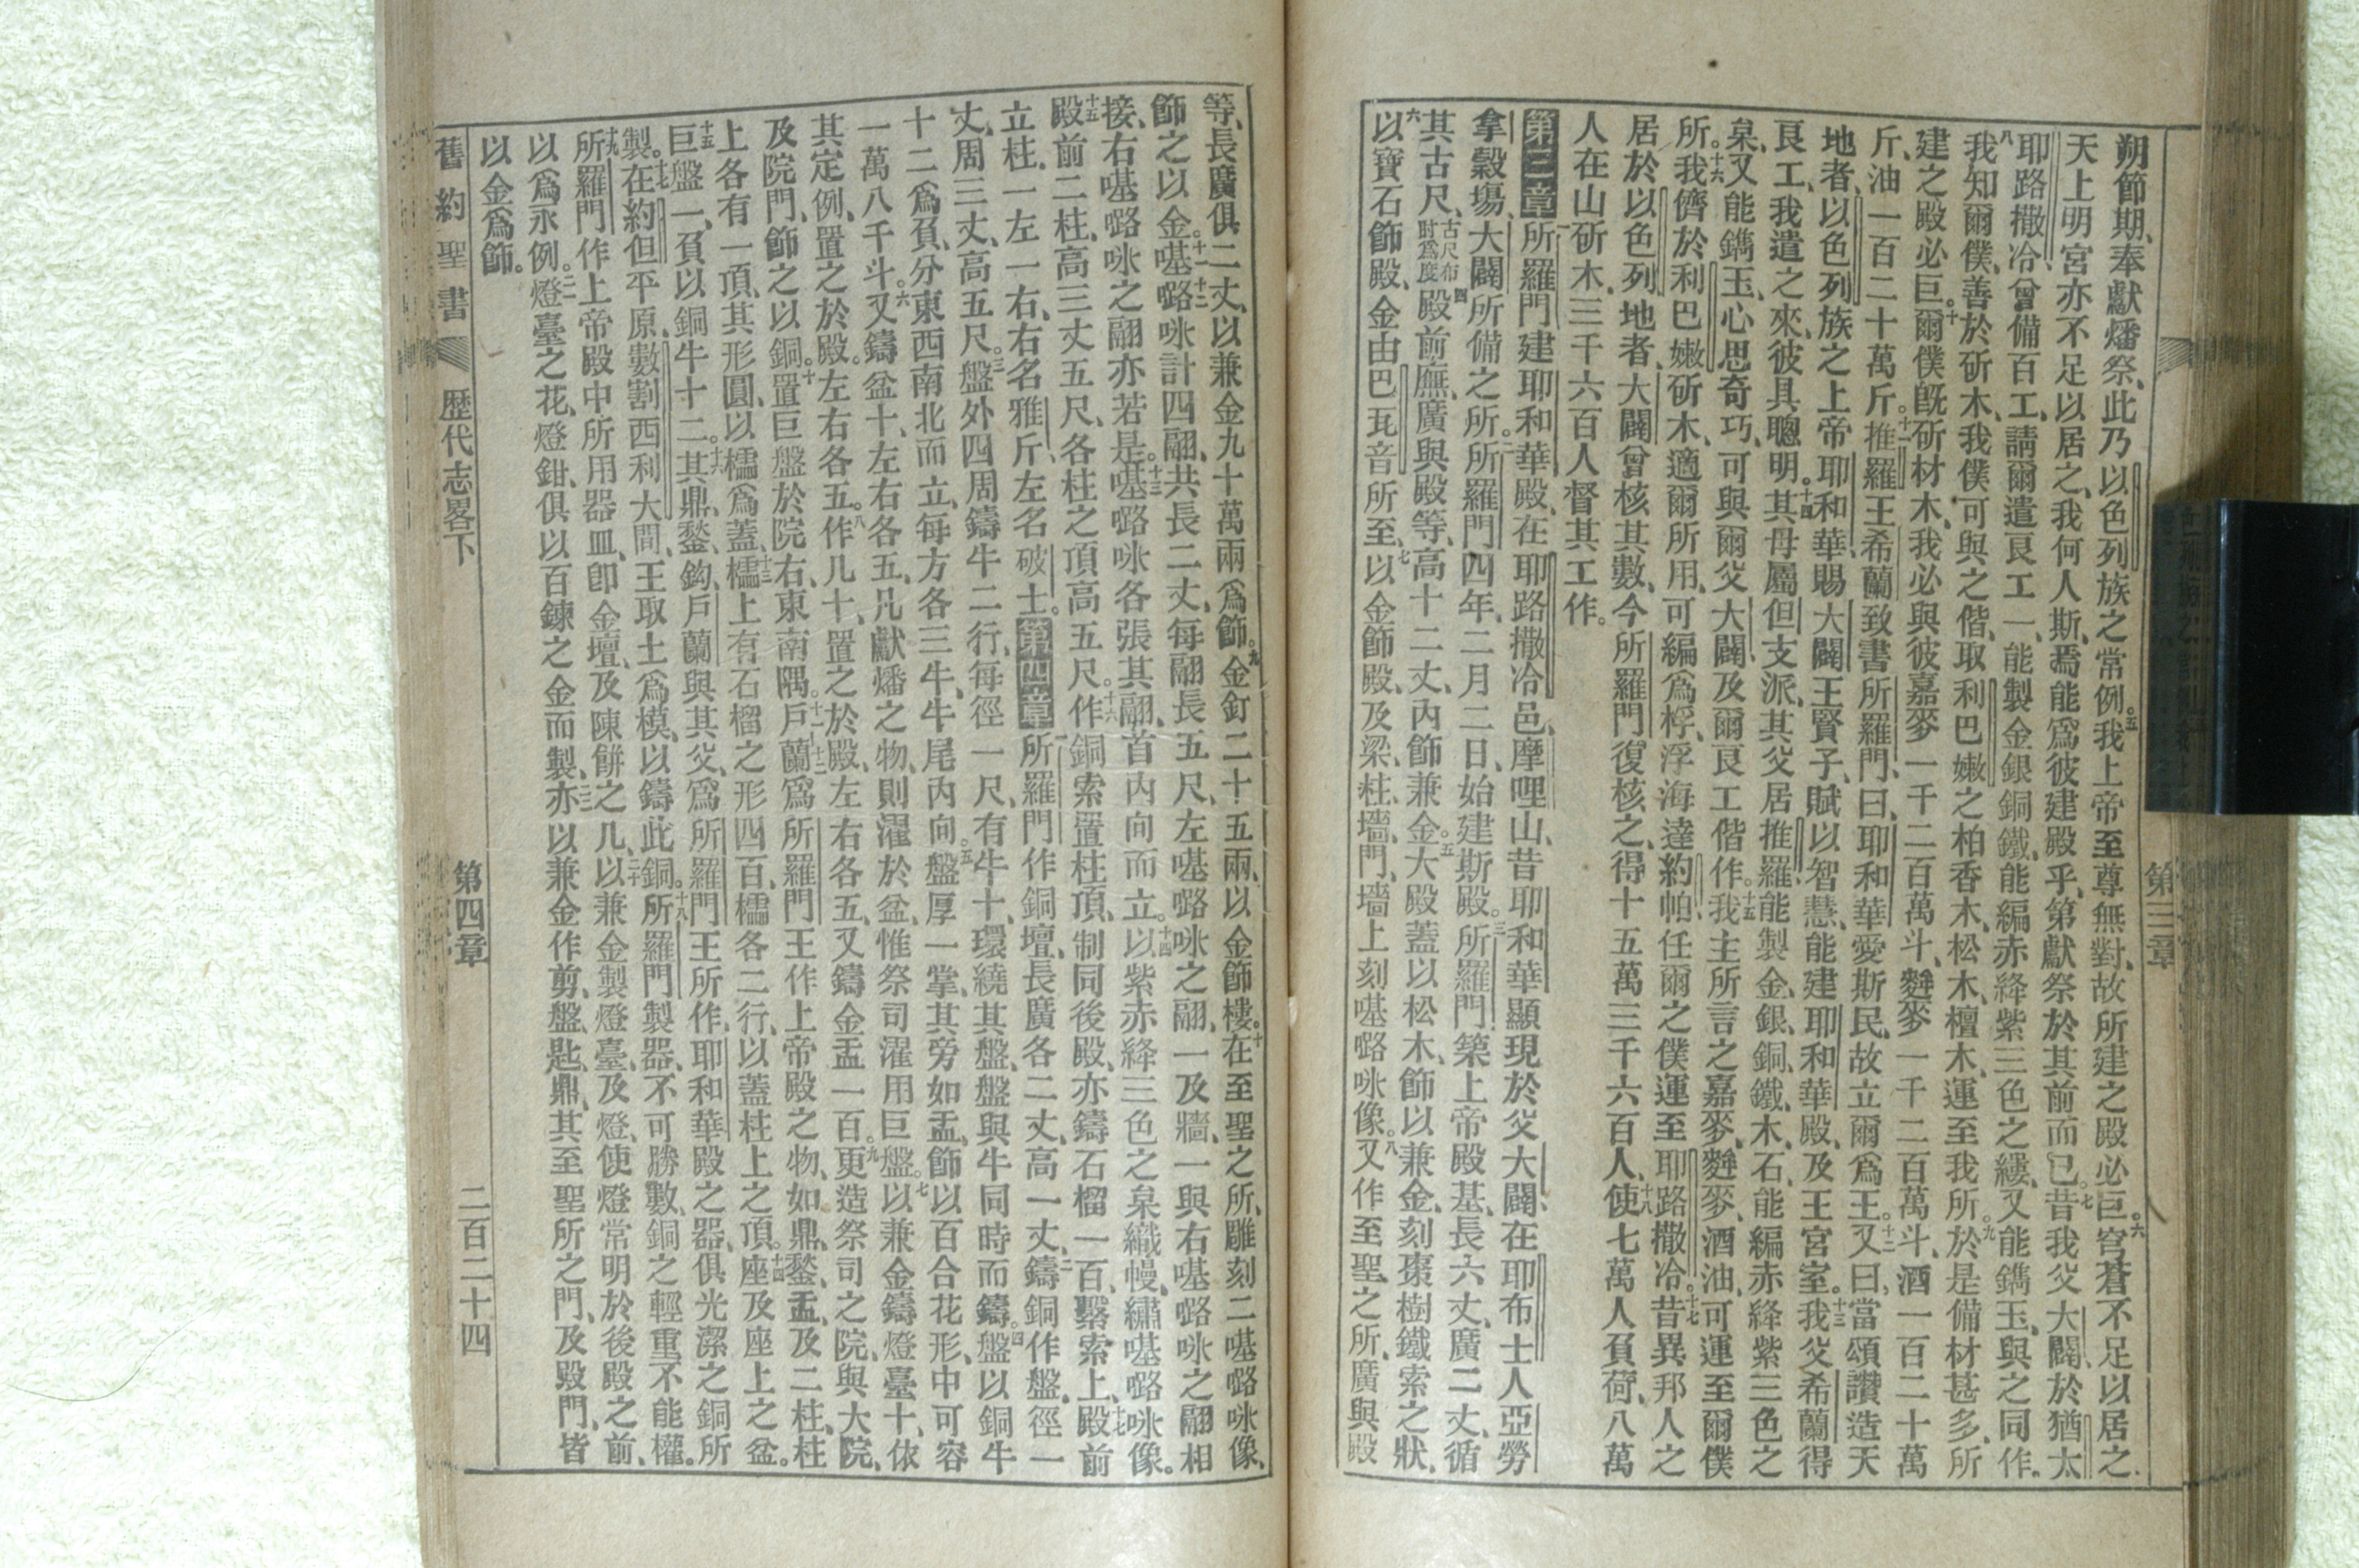 第三章
朔節期、奉獻燔祭、此乃以色列族之常例。五我上帝至尊無對、故所建之殿必巨。六穹蒼不足以居之、
天上明宮亦不足以居之、我何人斯、焉能爲彼建殿乎、第獻祭於其前而已。七昔我父大闢、於猶太
耶路撒冷、曾備百工、請爾遣良工一、能製金銀銅鐵、能編赤絳紫三色之縷、又能鐫玉、與之同作。
八我知爾僕、善於斫木、我僕可與之偕、取利巴嫩之柏香木、松木、檀木、運至我所。九於是備材甚多、所
建之殿必巨。十爾僕旣斫材木、我必與彼嘉麥一千二百萬斗、麰麥一千二百萬斗、酒一百二十萬
斤、油一百二十萬斤。十一推羅王希蘭致書所羅門、曰、耶和華愛斯民、故立爾爲王。十二又曰、當頌讚造天
地者、以色列族之上帝耶和華、賜大闢王賢子、賦以智慧、能建耶和華殿、及王宮室。十三我父希蘭得
良工、我遣之來、彼具聰明。十四其母屬但支派、其父居推羅、能製金、銀、銅、鐵、木、石、能編赤絳紫三色之
枲、又能鐫玉、心思奇巧、可與爾父大闢、及爾良工偕作。十五我主所言之嘉麥、麰麥、酒油、可運至爾僕
所。十六我儕於利巴嫩斫木、適爾所用、可編爲桴、浮海達約帕、任爾之僕運至耶路撒冷。十七昔異邦人之
居於以色列地者、大闢曾核其數、今所羅門復核之、得十五萬三千六百人、十八使七萬人負荷、八萬
人在山斫木、三千六百人督其工作。
第三章一所羅門建耶和華殿、在耶路撒冷邑、摩哩山、昔耶和華顯現於父大闢、在耶布士人亞勞
拿穀塲、大闢所備之所。二所羅門四年、二月二日、始建斯殿。三所羅門築上帝殿基、長六丈、廣二丈、循
其古尺、古尺布肘爲度四殿前廡、廣與殿等、高十二丈、內飾兼金。五大殿蓋以松木、飾以兼金、刻棗樹鐵索之狀、
六以寶石飾殿、金由巴瓦音所至、七以金飾殿、及梁、柱、墻、門、墻上刻𠼻㗉㖠像。八又作至聖之所、廣與殿
等、長廣俱二丈、以兼金九十萬兩爲飾。九金釘二十五兩、以金飾樓。十在至聖之所、雕刻二𠼻㗉㖠像、
飾之以金。十一十二𠼻㗉㖠計四翮、共長二丈、每翮長五尺、左𠼻㗉㖠之翮、一及牆、一與右𠼻㗉㖠之翮相
接、右𠼻㗉㖠之翮亦若是。十三𠼻㗉㖠各張其翮、首內向而立。十四以紫赤絳三色之枲織幔、繡𠼻㗉㖠像。
十五殿前二柱、高三丈五尺、各柱之頂高五尺。十六作銅索置柱頂、制同後殿、亦鑄石榴一百、繫索上、十七殿前
立柱、一左一右、右名雅斤、左名破士。第四章一所羅門作銅壇、長廣各二丈、高一丈、二鑄銅作盤、徑一
丈、周三丈、高五尺。三盤外四周鑄牛二行、每徑一尺、有牛十、環繞其盤、盤與牛同時而鑄。四盤以銅牛
十二爲負、分東西南北而立、每方各三牛、牛尾內向。五盤厚一掌、其旁如盂、飾以百合花形、中可容
一萬八千斗。六又鑄盆十、左右各五、凡獻燔之物、則濯於盆、惟祭司濯用巨盤。七以兼金鑄燈臺十、依
其定例、置之於殿。左右各五。八作几十、置之於殿、左右各五、又鑄金盂一百。九更造祭司之院、與大院、
及院門、飾之以銅。十置巨盤於院右、東南隅。十一十二戶蘭爲所羅門王作上帝殿之物、如鼎、鍫、盂、及二柱、柱
上各有一頂、其形圓、以檽爲蓋、十三檽上有石榴之形四百、檽各二行、以蓋柱上之頂。十四座及座上之盆。
十五巨盤一、負以銅牛十二。十六其鼎、鍫、鈎、戶蘭與其父、爲所羅門王所作、耶和華殿之器、俱光潔之銅所
製。十七在約但平原、數割西利大間、王取土爲模、以鑄此銅。十八所羅門製器、不可勝數、銅之輕重不能權。
十九所羅門作上帝殿中所用器皿、卽金壇、及陳餅之几、二十以兼金製燈臺、及燈、使燈常明於後殿之前、
以爲永例。二一燈臺之花、燈鉗、俱以百鍊之金而製、二二亦以兼金作剪、盤、匙、鼎、其至聖所之門、及殿門、皆
以金爲飾。
舊約聖書 歷代志畧下 第四章 二百二十四